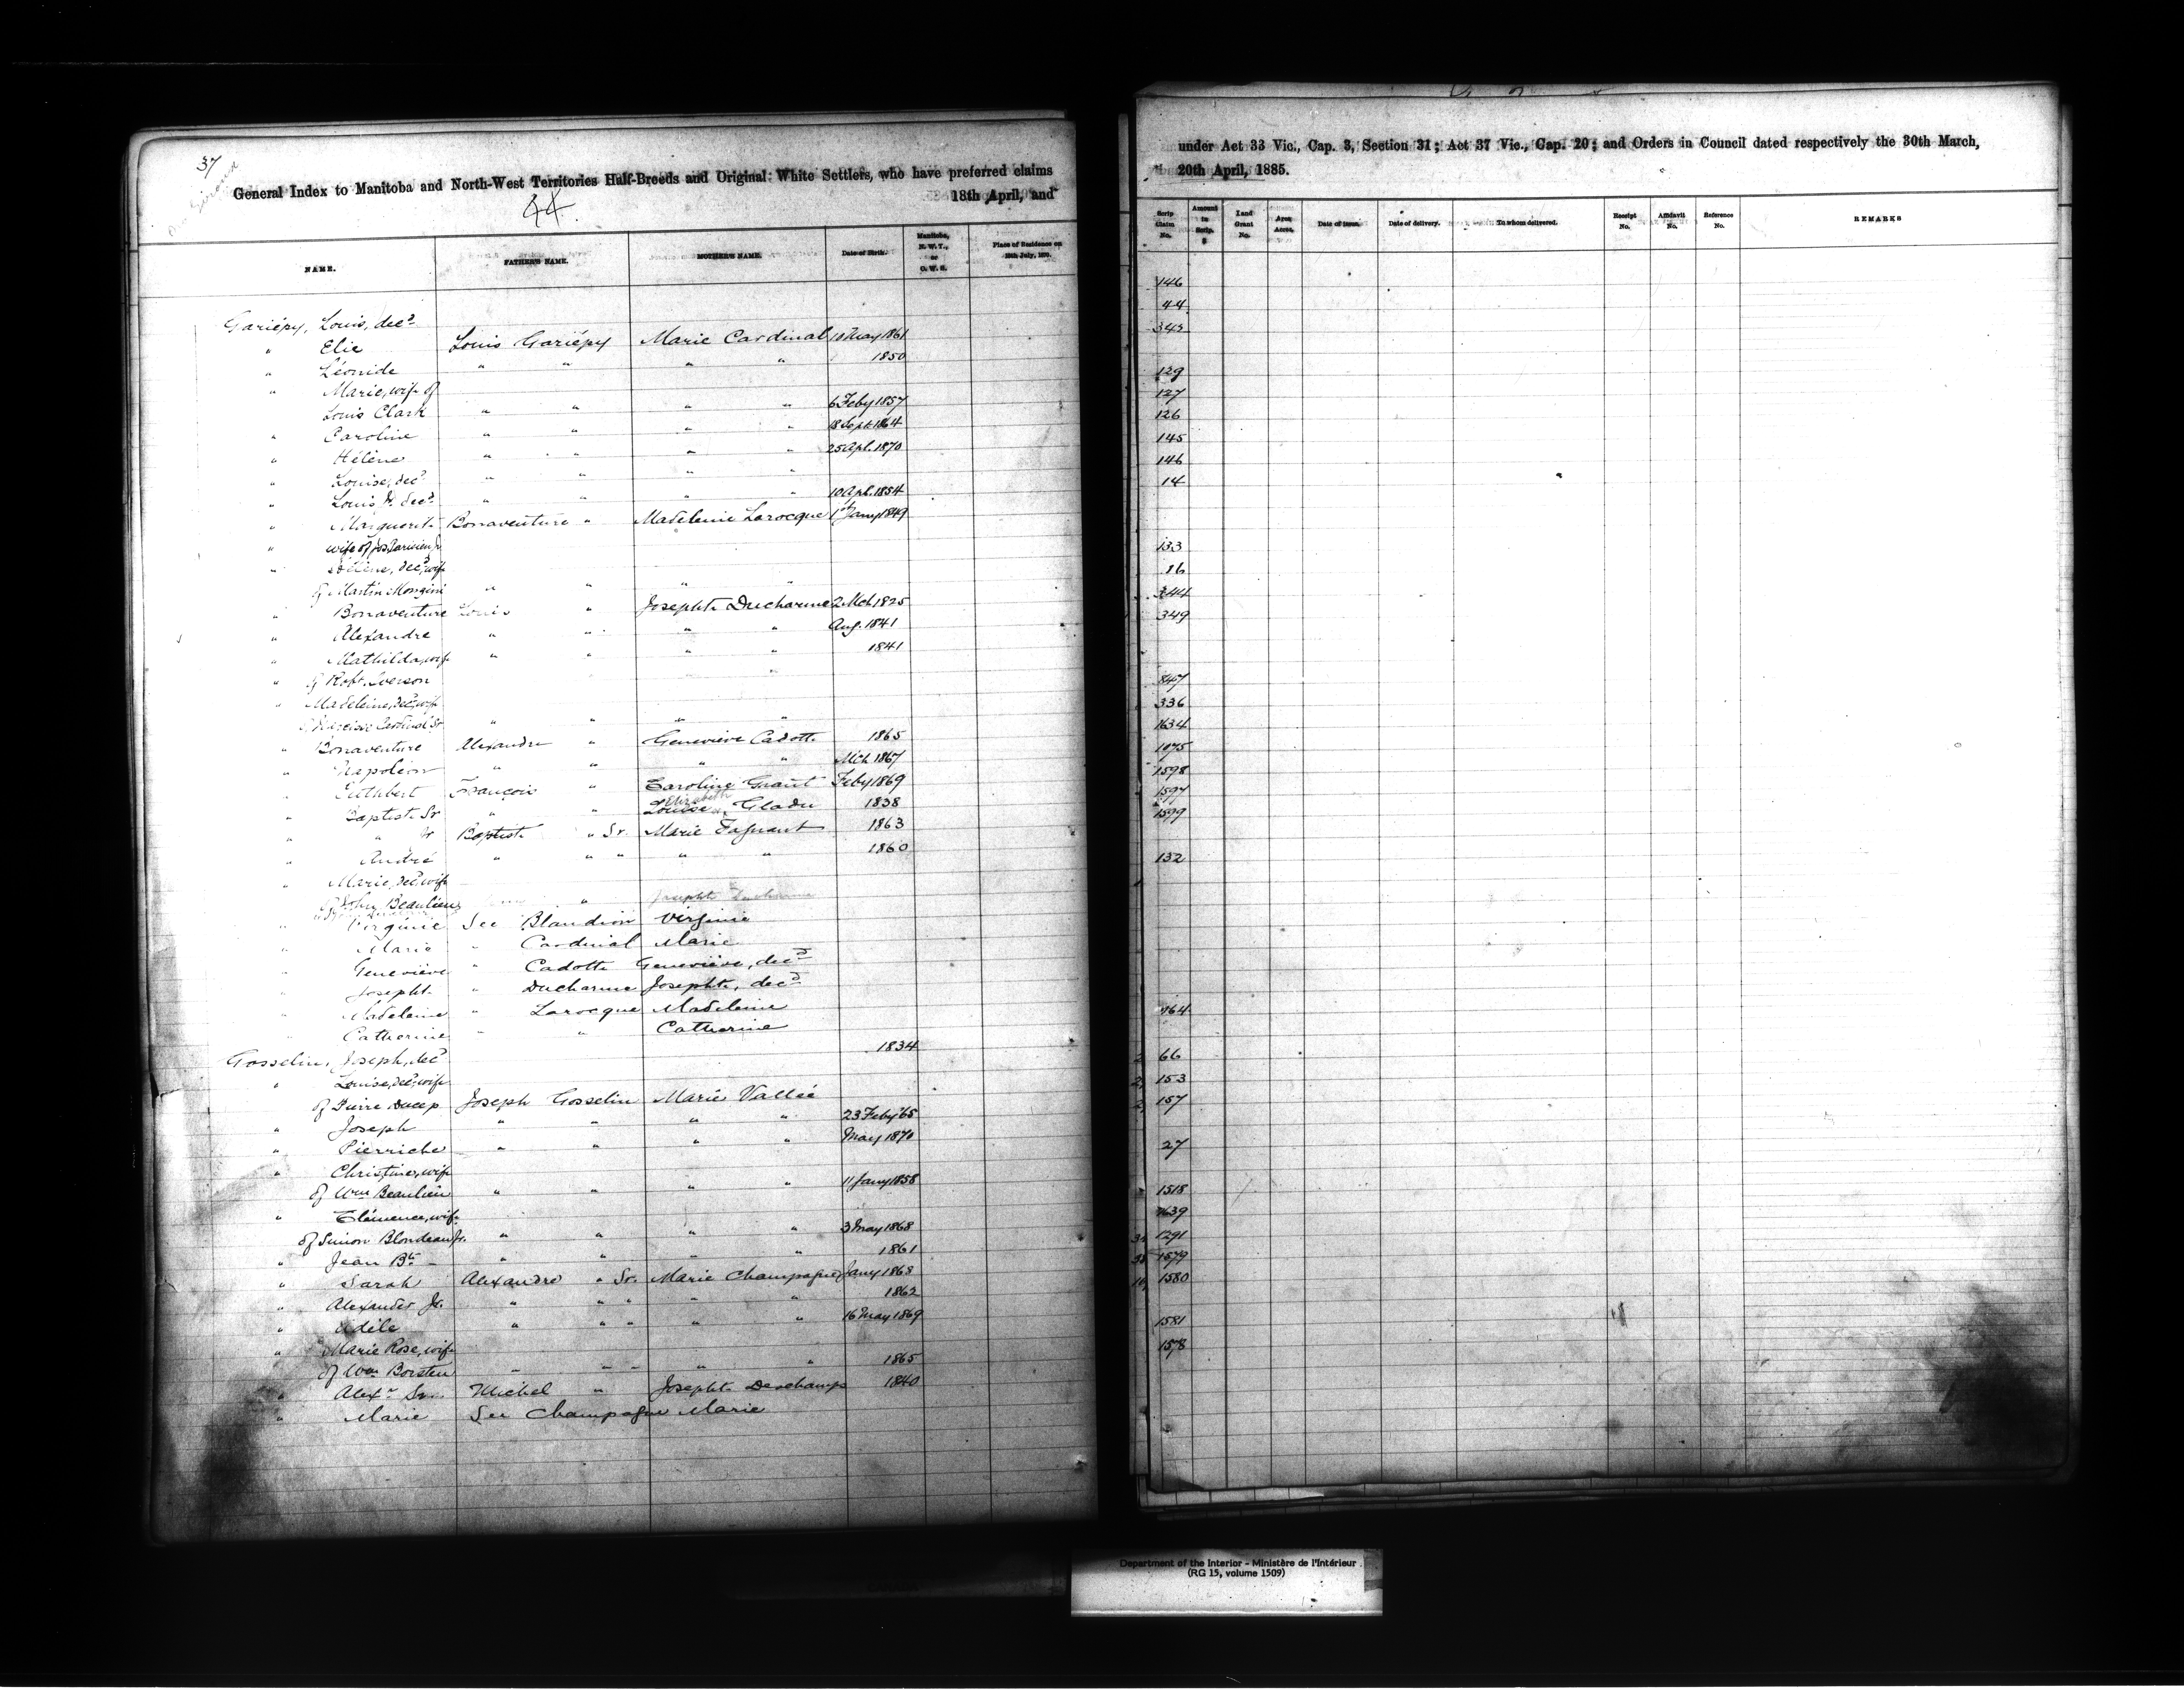 37
General Index to Manitoba and North-West Territories Half-Breeds and Original White Settlers, who have preferred claims
18th April, and
44
NAME. FATHER'S NAME. MOTHER'S NAME. Date of Birth. Manitoba, N. W. T., or O. W. S. Place of Residence on 15th July, 1870.
Gariépy, Louis, decd
" Elie Louis Gariépy Marie Cardinal 10 May 1861
" Léonide " " " " 1850
" Marie, wife of
Louis Clark " " " " 6 Feby 1857
" Caroline " " " " 18 Sept 1864
" Hélène " " " " 25 Apl. 1870
" Louise, decd " " " "
" Louis Jr. decd " " " " 10 Apl. 1854
" Marguerite Bonaventure " Madeleine Larocque 1st Jany 1849
" wife of Jos. Parisien Jr
" Hélène, decd, wife
of Martin Mongini " " " "
" Bonaventure Louis " Josephte Ducharme 2 Mch 1825
" Alexandre " " " " Aug. 1841
" Mathilda, wife " " " " 1841
" of Robt. Iverson
" Madeleine, decd, wife
of Narcisse Cardinal Sr " " " "
" Bonaventure Alexandre " Genevieve Cadotte 1865
" Napoléon " " " " Mch 1867
" Cuthbert François " Caroline Grant Feby 1869
" Baptiste Sr " " Louise Elizabeth Gladu 1838
" " Jr Baptiste " Sr. Marie Fagnant 1863
" André " " " " " 1860
" Marie, decd, wife
of John Beaulieu " Josephte Ducharme
" Virginie See Blandion Virginie
" Marie " Cardinal Marie
" Geneviève " Cadotte Geneviève, decd
" Josephte " Ducharme Josephte, decd
" Madeleine " Larocque Madeleine
" Catherine " " Catherine
Gosselin, Joseph, decd 1834
" Louise, decd, wife
of Pierre Ducep Joseph Gosselin Marie Vallée
" Joseph " " " " 23 Feby '65
" Pierriche " " " " May 1870
" Christine, wife
of Wm Beaulieu " " " " 11 Jany 1858
" Clémence, wife
of Simon Blondeau Jr. " " " " 3 May 1868
" Jean Bte " " " " 1861
" Sarah Alexandre " Sr. Marie Champagne Jany 1868
" Alexander Jr. " " " " " 1862
" Adèle " " " " " 16 May 1869
" Marie Rose, wife
of Wm Borsten " " " " " 1865
" Alexr Sr. Michel " Josephte Deschamps 1840
" Marie See Champagne Marie
under Act 33 Vic., Cap. 3, Section 31; Act 37 Vic., Cap. 20; and Orders in Council dated respectively the 30th March,
20th April, 1885.
Scrip Claim No. Amount in Scrip. $ Land Grant No. Area Acres. Date of Issue. Date of delivery. To whom delivered. Receipt No. Affidavit No. Reference No. REMARKS
146
44
343
129
127
126
145
146
14
133
86
344
349
847
336
1634
1075
1598
1597
1599
132
764
66
153
157
27
1518
1639
1291
1579
1580
1581
1578
Department of the Interior - Ministère de l'Intérieur
(RG 15, volume 1509)